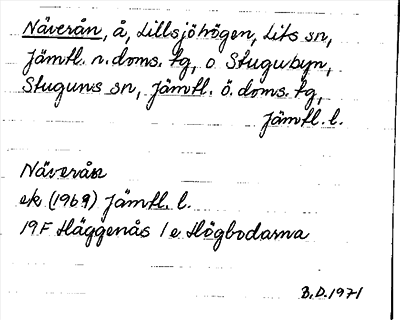 Näverån, å, Lillsjöhögen, Lits sn,
Jämtl. n. doms. tg, o Stugubyn,
Stuguns sn, Jämtl. ö. doms. tg,
Jämtl. l.
Näverån
ek (1969) Jämtl. l.
19F Häggenås 1 e Högbodarna
B.D. 1971